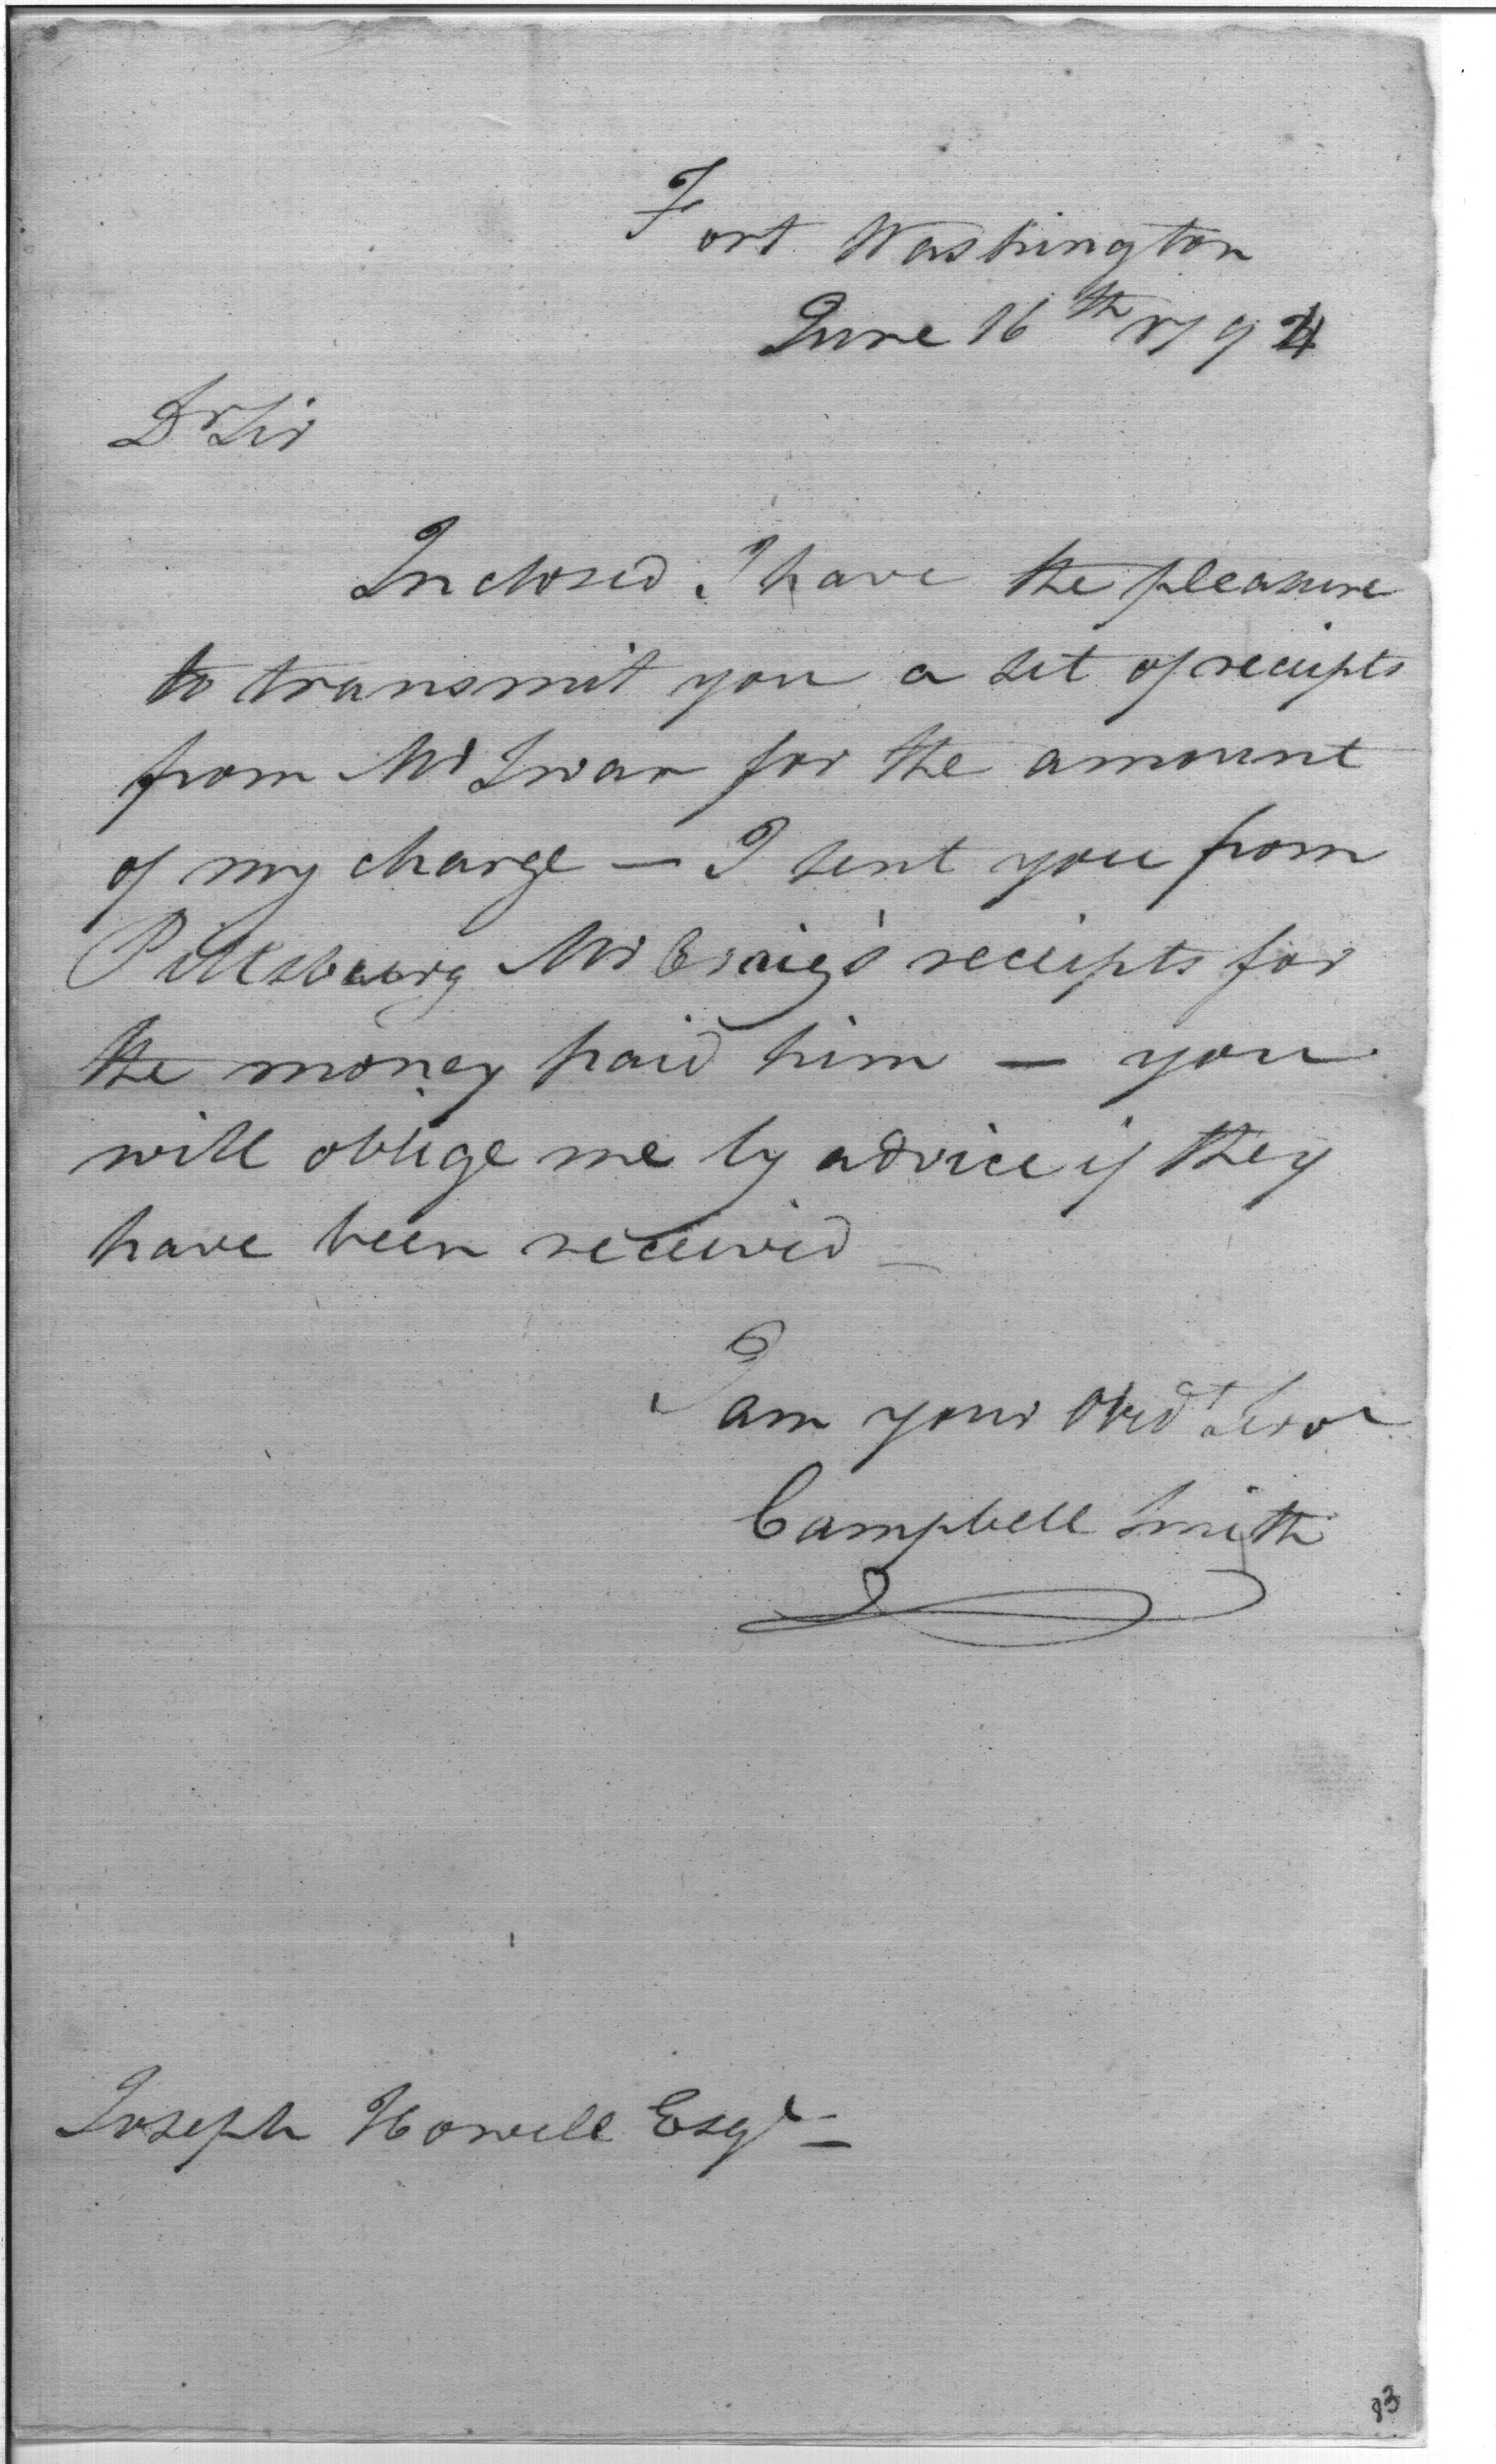 Fort Washington
June 16th 1794
Dr Sir
Inclosed I have the pleasure
to transmit you a set of receipts
from Mr Swan for the amount
of my charge — I sent you from
Pittsburg Mr Craig's receipts for
the money paid him — you
will oblige me by advice if they
have been received —
I am your Obedt Serv
Campbell Smith
Joseph Howell Esqr —